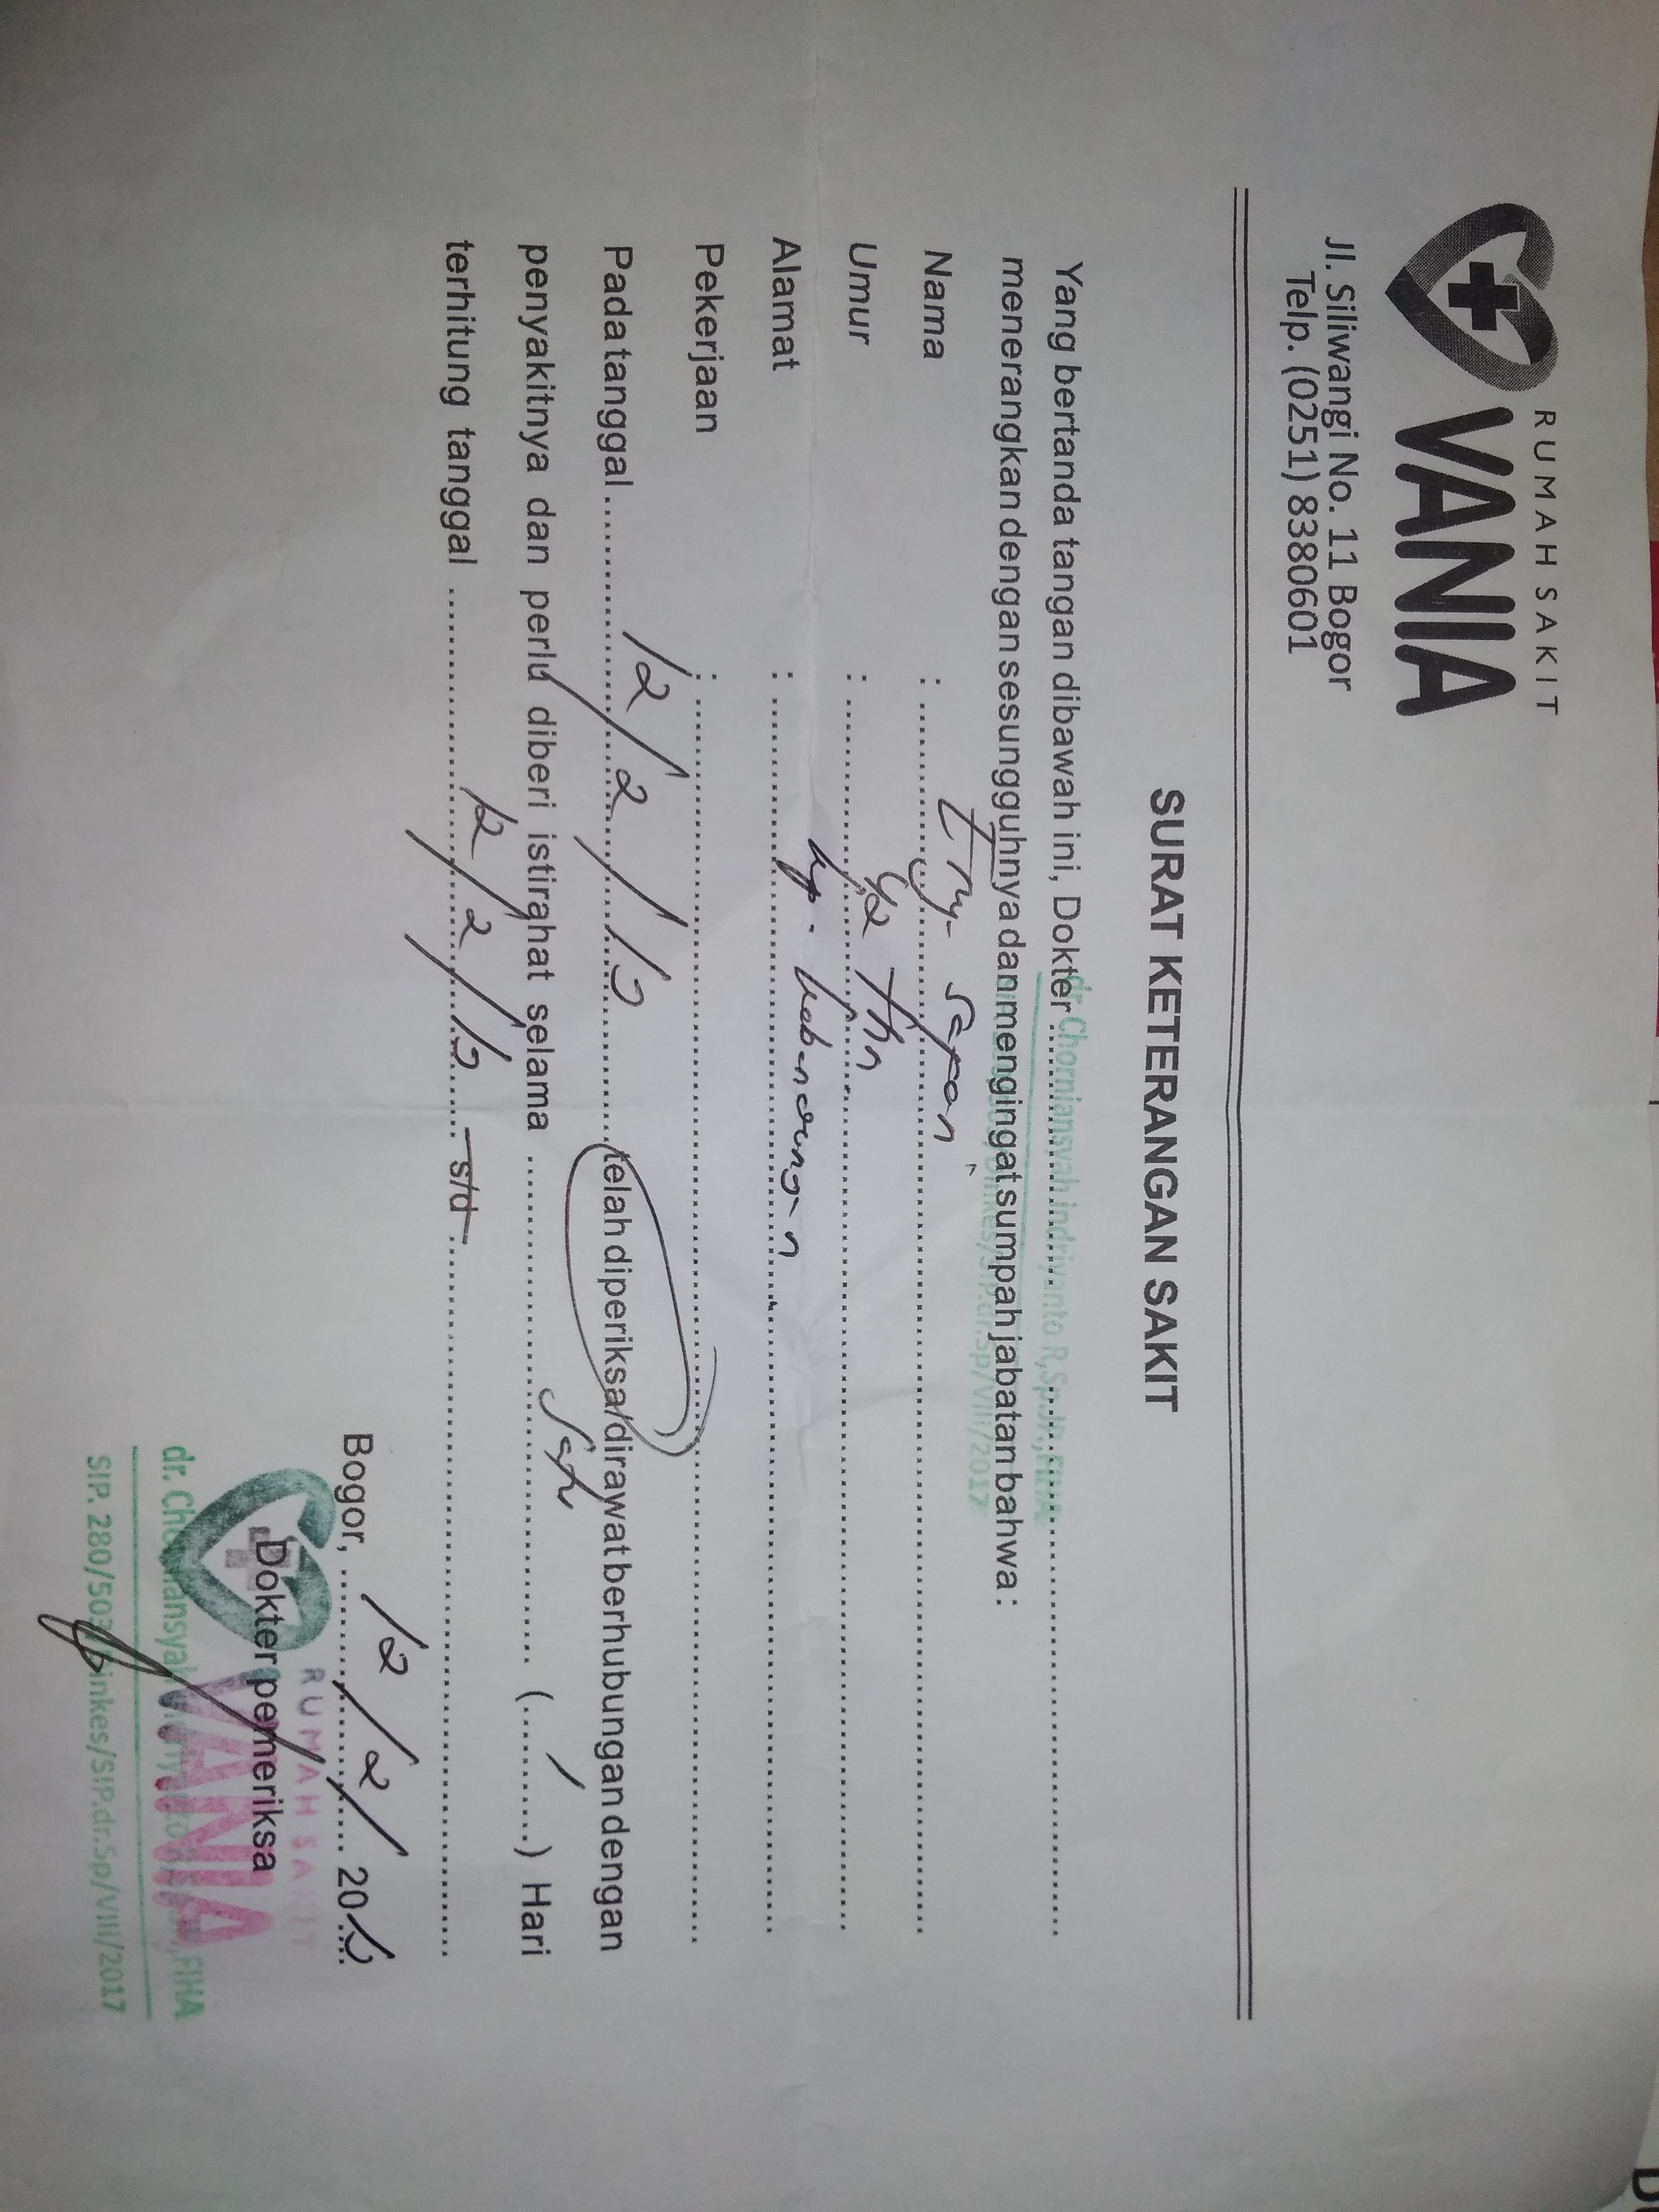 RUMAH SAKIT
VANIA
Jl. Siliwangi No. 11 Bogor
Telp. (0251) 8380601
SURAT KETERANGAN SAKIT
Yang bertanda tangan dibawah ini, Dokter dr. Chorniansyah Indriyanto R,Sp.JP.,FIHA
menerangkan dengan sesungguhnya dan mengingat sumpah jabatan bahwa :
Nama :
Umur : 42 thn
Alamat : kp.
Pekerjaan :
Pada tanggal 12/2/ telah diperiksa/dirawat berhubungan dengan
penyakitnya dan perlu diberi istirahat selama Satu (1) Hari
terhitung tanggal 12/2/ s/d
Bogor, 12/2/ 20
Dokter pemeriksa
RUMAH SAKIT
VANIA
dr. Chorniansyah Indriyanto R,Sp.JP.,FIHA
SIP. 280/503/Dinkes/SIP.dr.Sp/VIII/2017